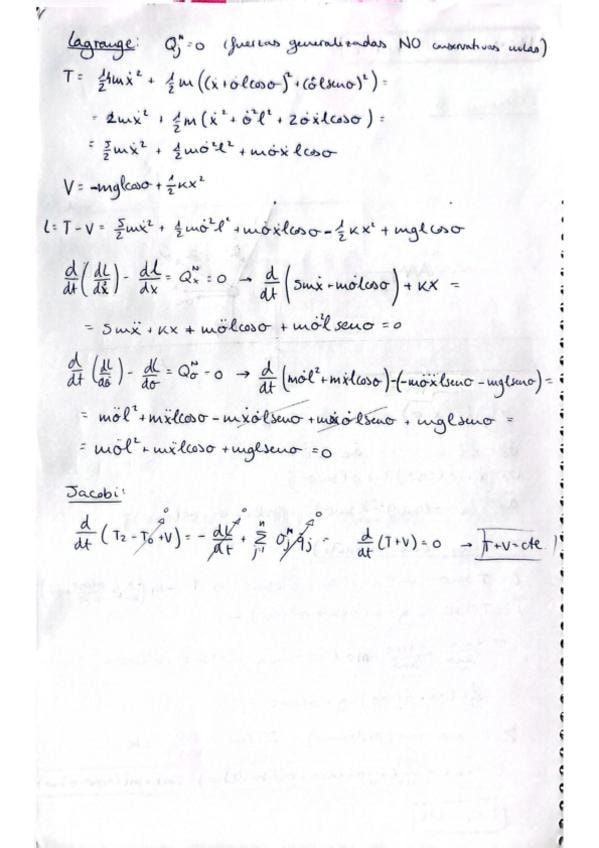 Lagrange: Q_j^N = 0 (fuerzas generalizadas NO conservativas nulas)
T = ½4mẋ² + ½m((ẋ + σ̇lcosσ)² + (σ̇lsenσ)²) =
= 2mẋ² + ½m(ẋ² + σ̇²l² + 2σ̇ẋlcosσ) =
= 5/2mẋ² + ½mσ̇²l² + mσ̇ẋlcosσ
V = -mglcosσ + ½kx²
L = T - V = 5/2mẋ² + ½mσ̇²l² + mσ̇ẋlcosσ - ½kx² + mglcosσ
d/dt(dL/dẋ) - dL/dx = Q_x^N = 0 → d/dt(5mẋ + mσ̇lcosσ) + kx =
= 5mẍ + kx + mσ̈lcosσ + mσ̇²lsenσ = 0
d/dt(dL/dσ̇) - dL/dσ = Q_σ^N = 0 → d/dt(mσ̇l² + mẋlcosσ) - (-mσ̇ẋlsenσ - mglsenσ) =
= mσ̈l² + mẍlcosσ - mẋσ̇lsenσ + mẋσ̇lsenσ + mglsenσ =
= mσ̈l² + mẍlcosσ + mglsenσ = 0
Jacobi:
d/dt(T₂ - T₀ + V) = - dL/dt + Σ_{j=1}^n Q_j^N q̇_j = d/dt(T+V) = 0 → T+V=cte